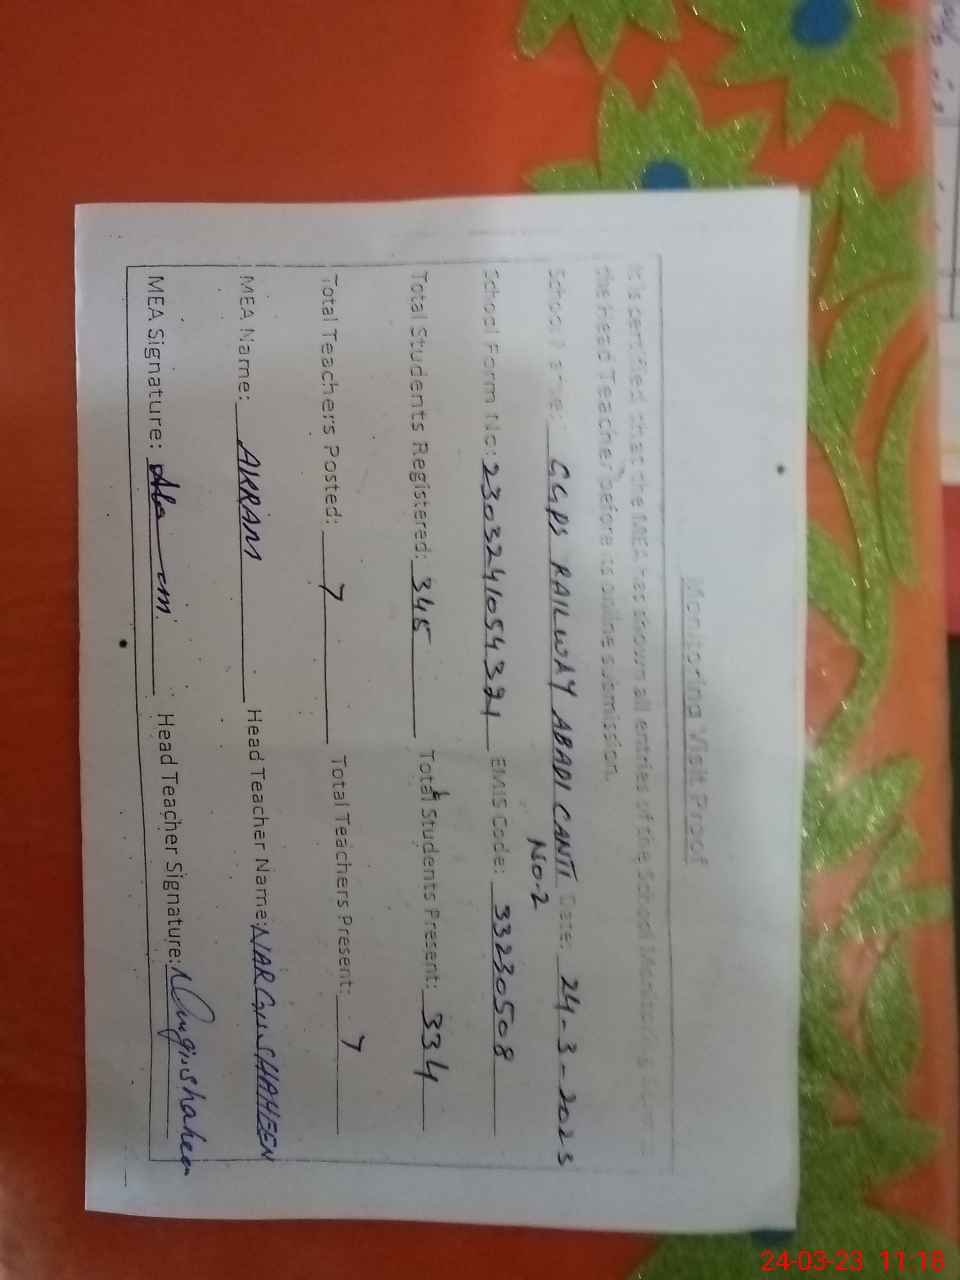 Monitoring Visit Proof
It is certified that the MEA has shown all entries of the School Monitoring
the Head Teacher before its online submission.
School Name: GGPS RAILWAY ABADI CANTT Date: 24-3-2023
No-2
School Form No: EMIS Code: 33230508
Total Students Registered: 345 Total Students Present: 334
Total Teachers Posted: 7 Total Teachers Present: 7
MEA Name: AKRAM Head Teacher Name: NARGIS SHAHEEN
MEA Signature: Head Teacher Signature: Nargis shaheen
24-03-23 11:18